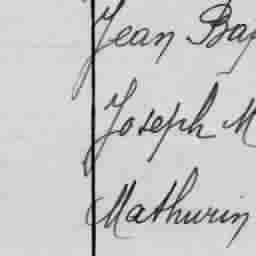 Jean Bap
Joseph M
Mathurin